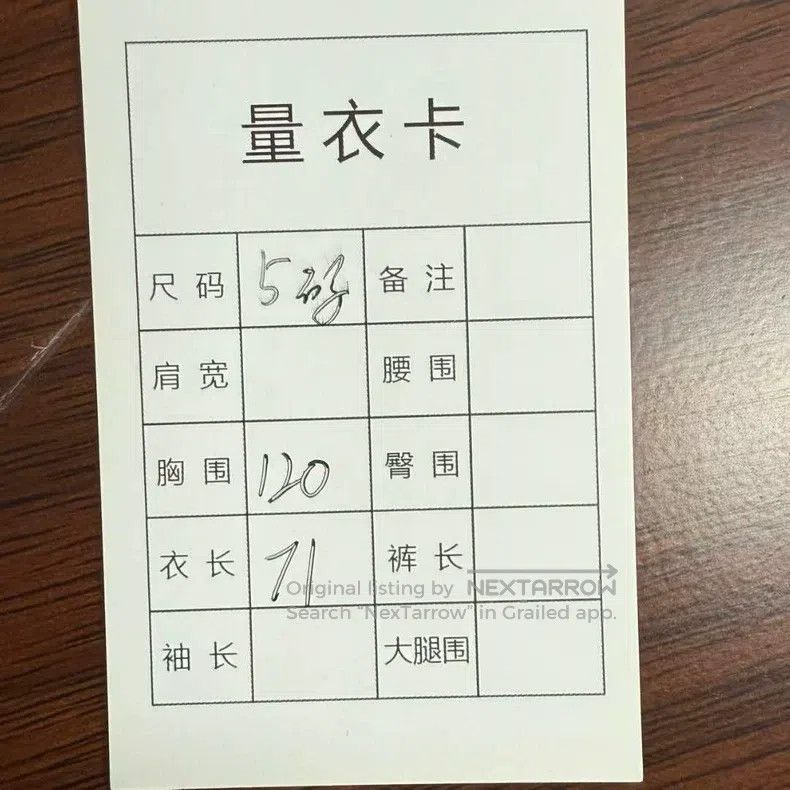 量衣卡
尺码 5码 备注
肩宽 腰围
胸围 120 臀围
衣长 71 裤长
Original listing by NEXTARROW
Search "NexTarrow" in Grailed app.
袖长 大腿围